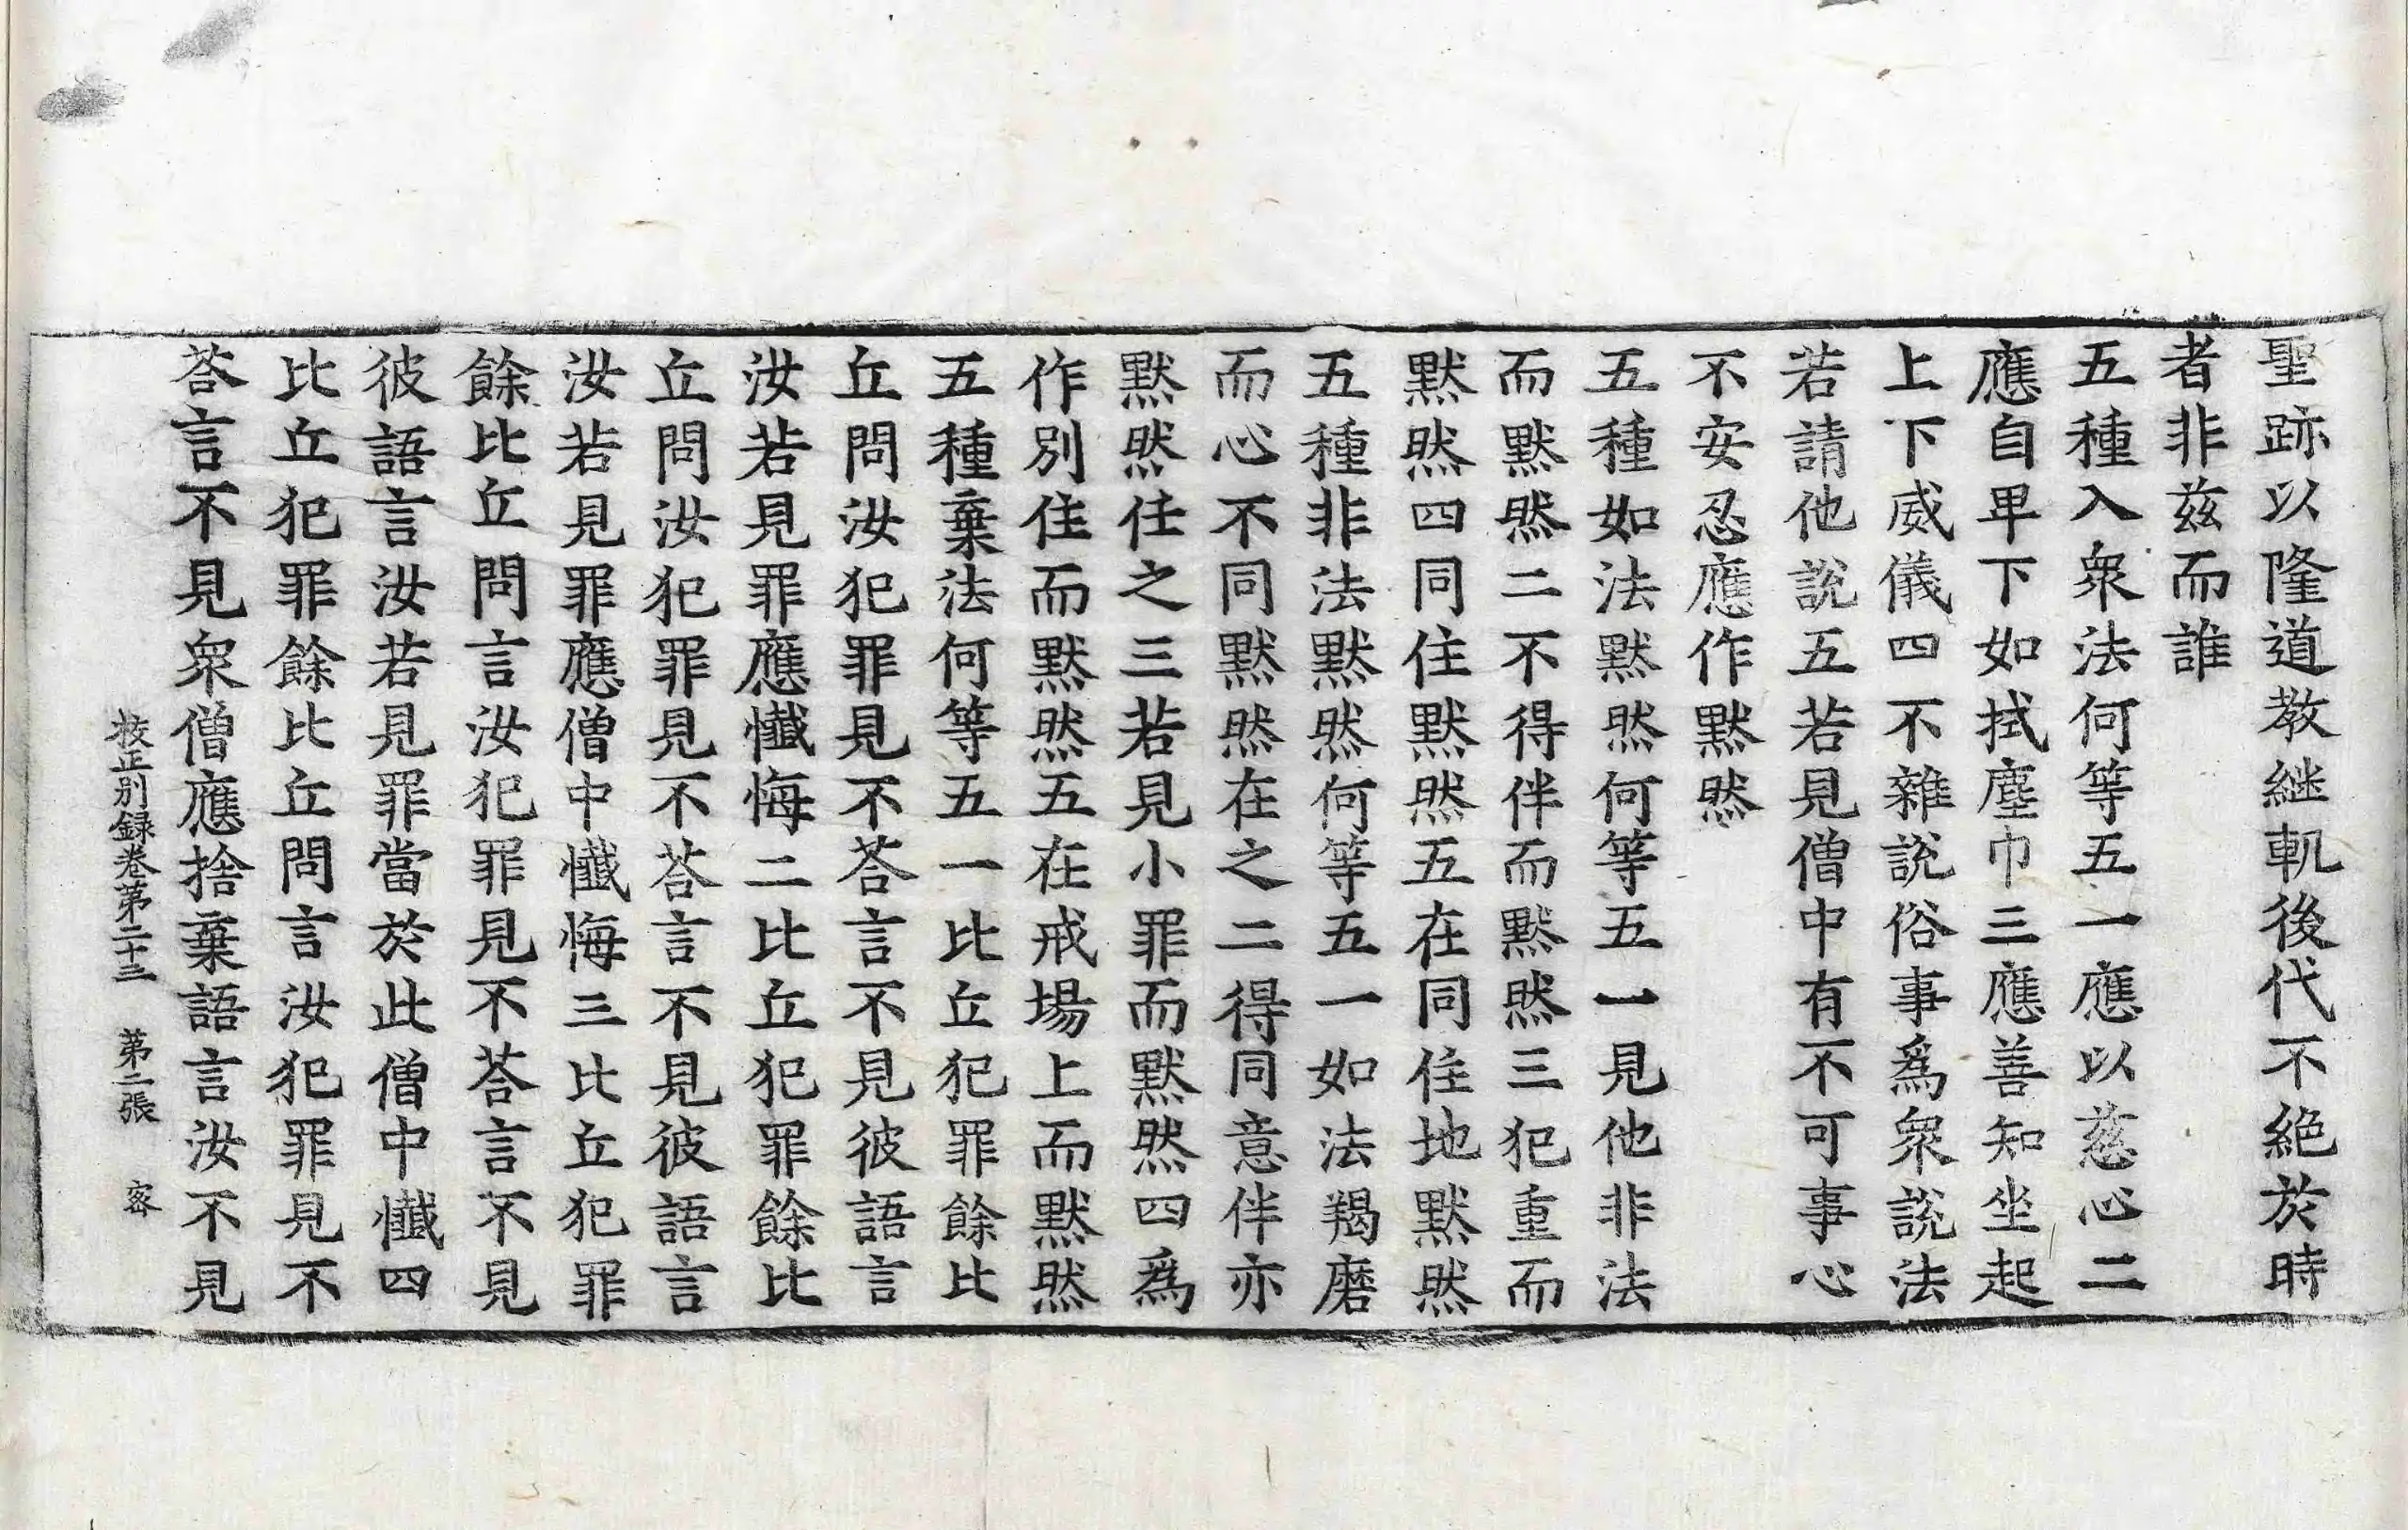 聖跡以隆道教継軌後代不絶於時
者非兹而誰
五種入衆法何等五一應以慈心二
應自卑下如拭塵巾三應善知坐起
上下威儀四不雜說俗事爲衆說法
若請他說五若見僧中有不可事心
不安忍應作默然
五種如法默然何等五一見他非法
而默然二不得伴而默然三犯重而
默然四同住默然五在同住地默然
五種非法默然何等五一如法羯磨
而心不同默然在之二得同意伴亦
默然任之三若見小罪而默然四爲
作別住而默然五在戒場上而默然
五種棄法何等五一比丘犯罪餘比
丘問汝犯罪見不荅言不見彼語言
汝若見罪應懺悔二比丘犯罪餘比
丘問汝犯罪見不荅言不見彼語言
汝若見罪應僧中懺悔三比丘犯罪
餘比丘問言汝犯罪見不荅言不見
彼語言汝若見罪當於此僧中懺四
比丘犯罪餘比丘問言汝犯罪見不
荅言不見衆僧應捨棄語言汝不見
校正別録卷第二十三 第二張 宻